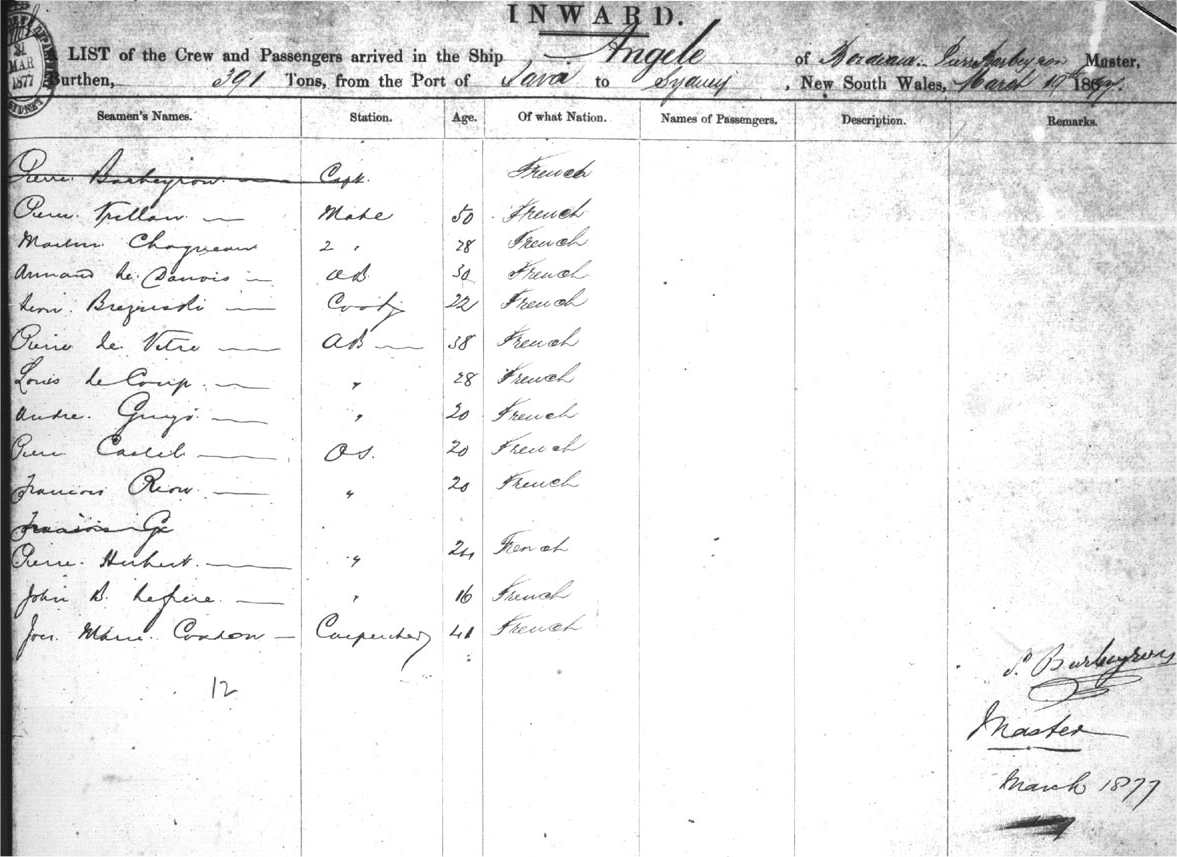 INWARD.
LIST of the Crew and Passengers arrived in the Ship Angele of Bordeaux. Master,
Burthen, 391 Tons, from the Port of Java to Sydney, New South Wales, March 19th 1877.
Seamen's Names. Station. Age. Of what Nation. Names of Passengers. Description. Remarks.
21
MAR
1877
SYDNEY
Pierre Barbeyron Capt. French
Pierre Mate 50 French
Martin 2 " 28 French
Armand de Danois AB 30 French
22 French
Pierre de Vitre AB 38 French
Louis de Coup " 28 French
Andre " 20 French
Pierre OS. 20 French
Francois Riou " 20 French
Francois Ge
Pierre Herbert " 24 French
John B. " 16 French
Marie Condon Carpenter 41 French
12
P. Barbeyron
Master
March 1877